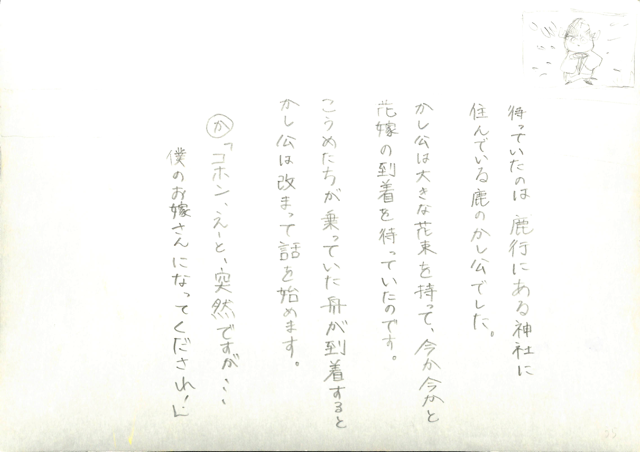 待っていたのは鹿行にある神社に
住んでいる鹿のかし公でした。
かし公は大きな花束を持って、今か今かと
花嫁の到着を待っていたのです。
こうめたちが乗っていた舟が到着すると
かし公は改まって話を始めます。
か「コホン、えーと、突然ですが・・・
僕のお嫁さんになってくだされ!」